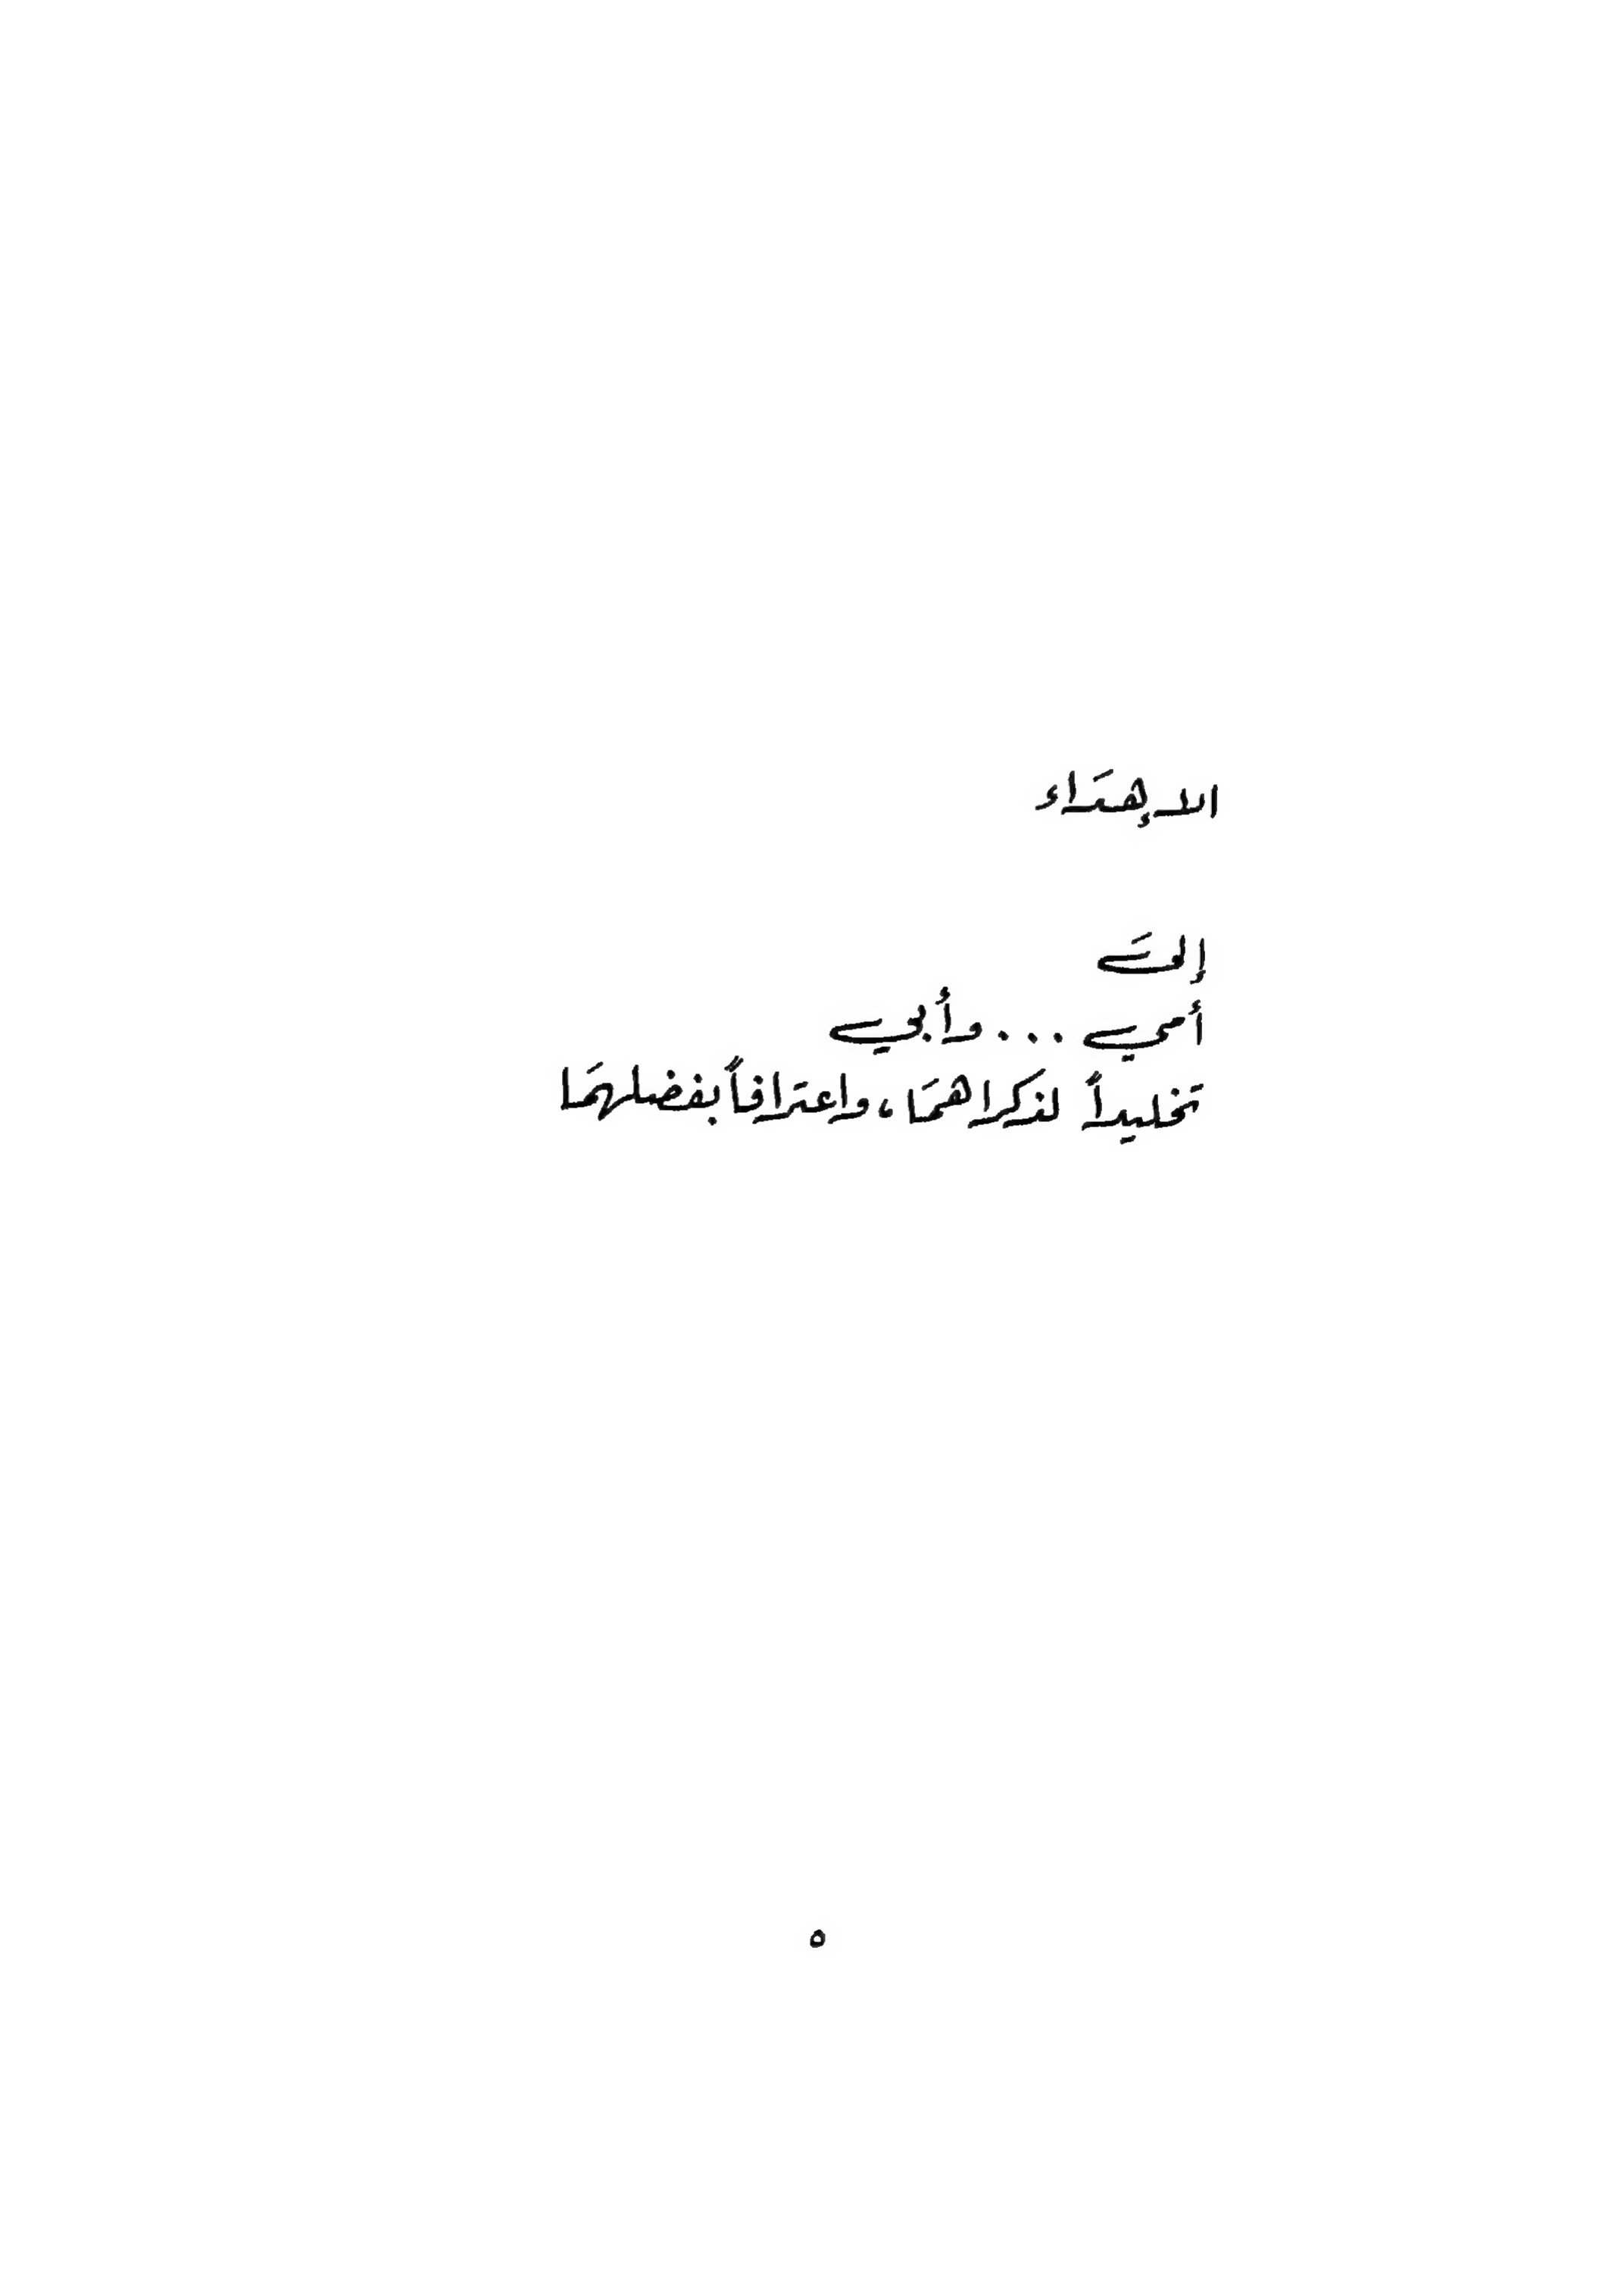 الإهدَاء
إلىَ
أمي ... وأبي
تخليداً لذكراهمَا، واعترافاً بفضلهمَا
٥